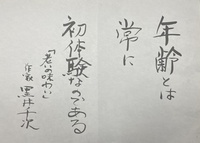 年齢とは
常に
初体験なのである
「老いの味わい」
作家 黒井千次